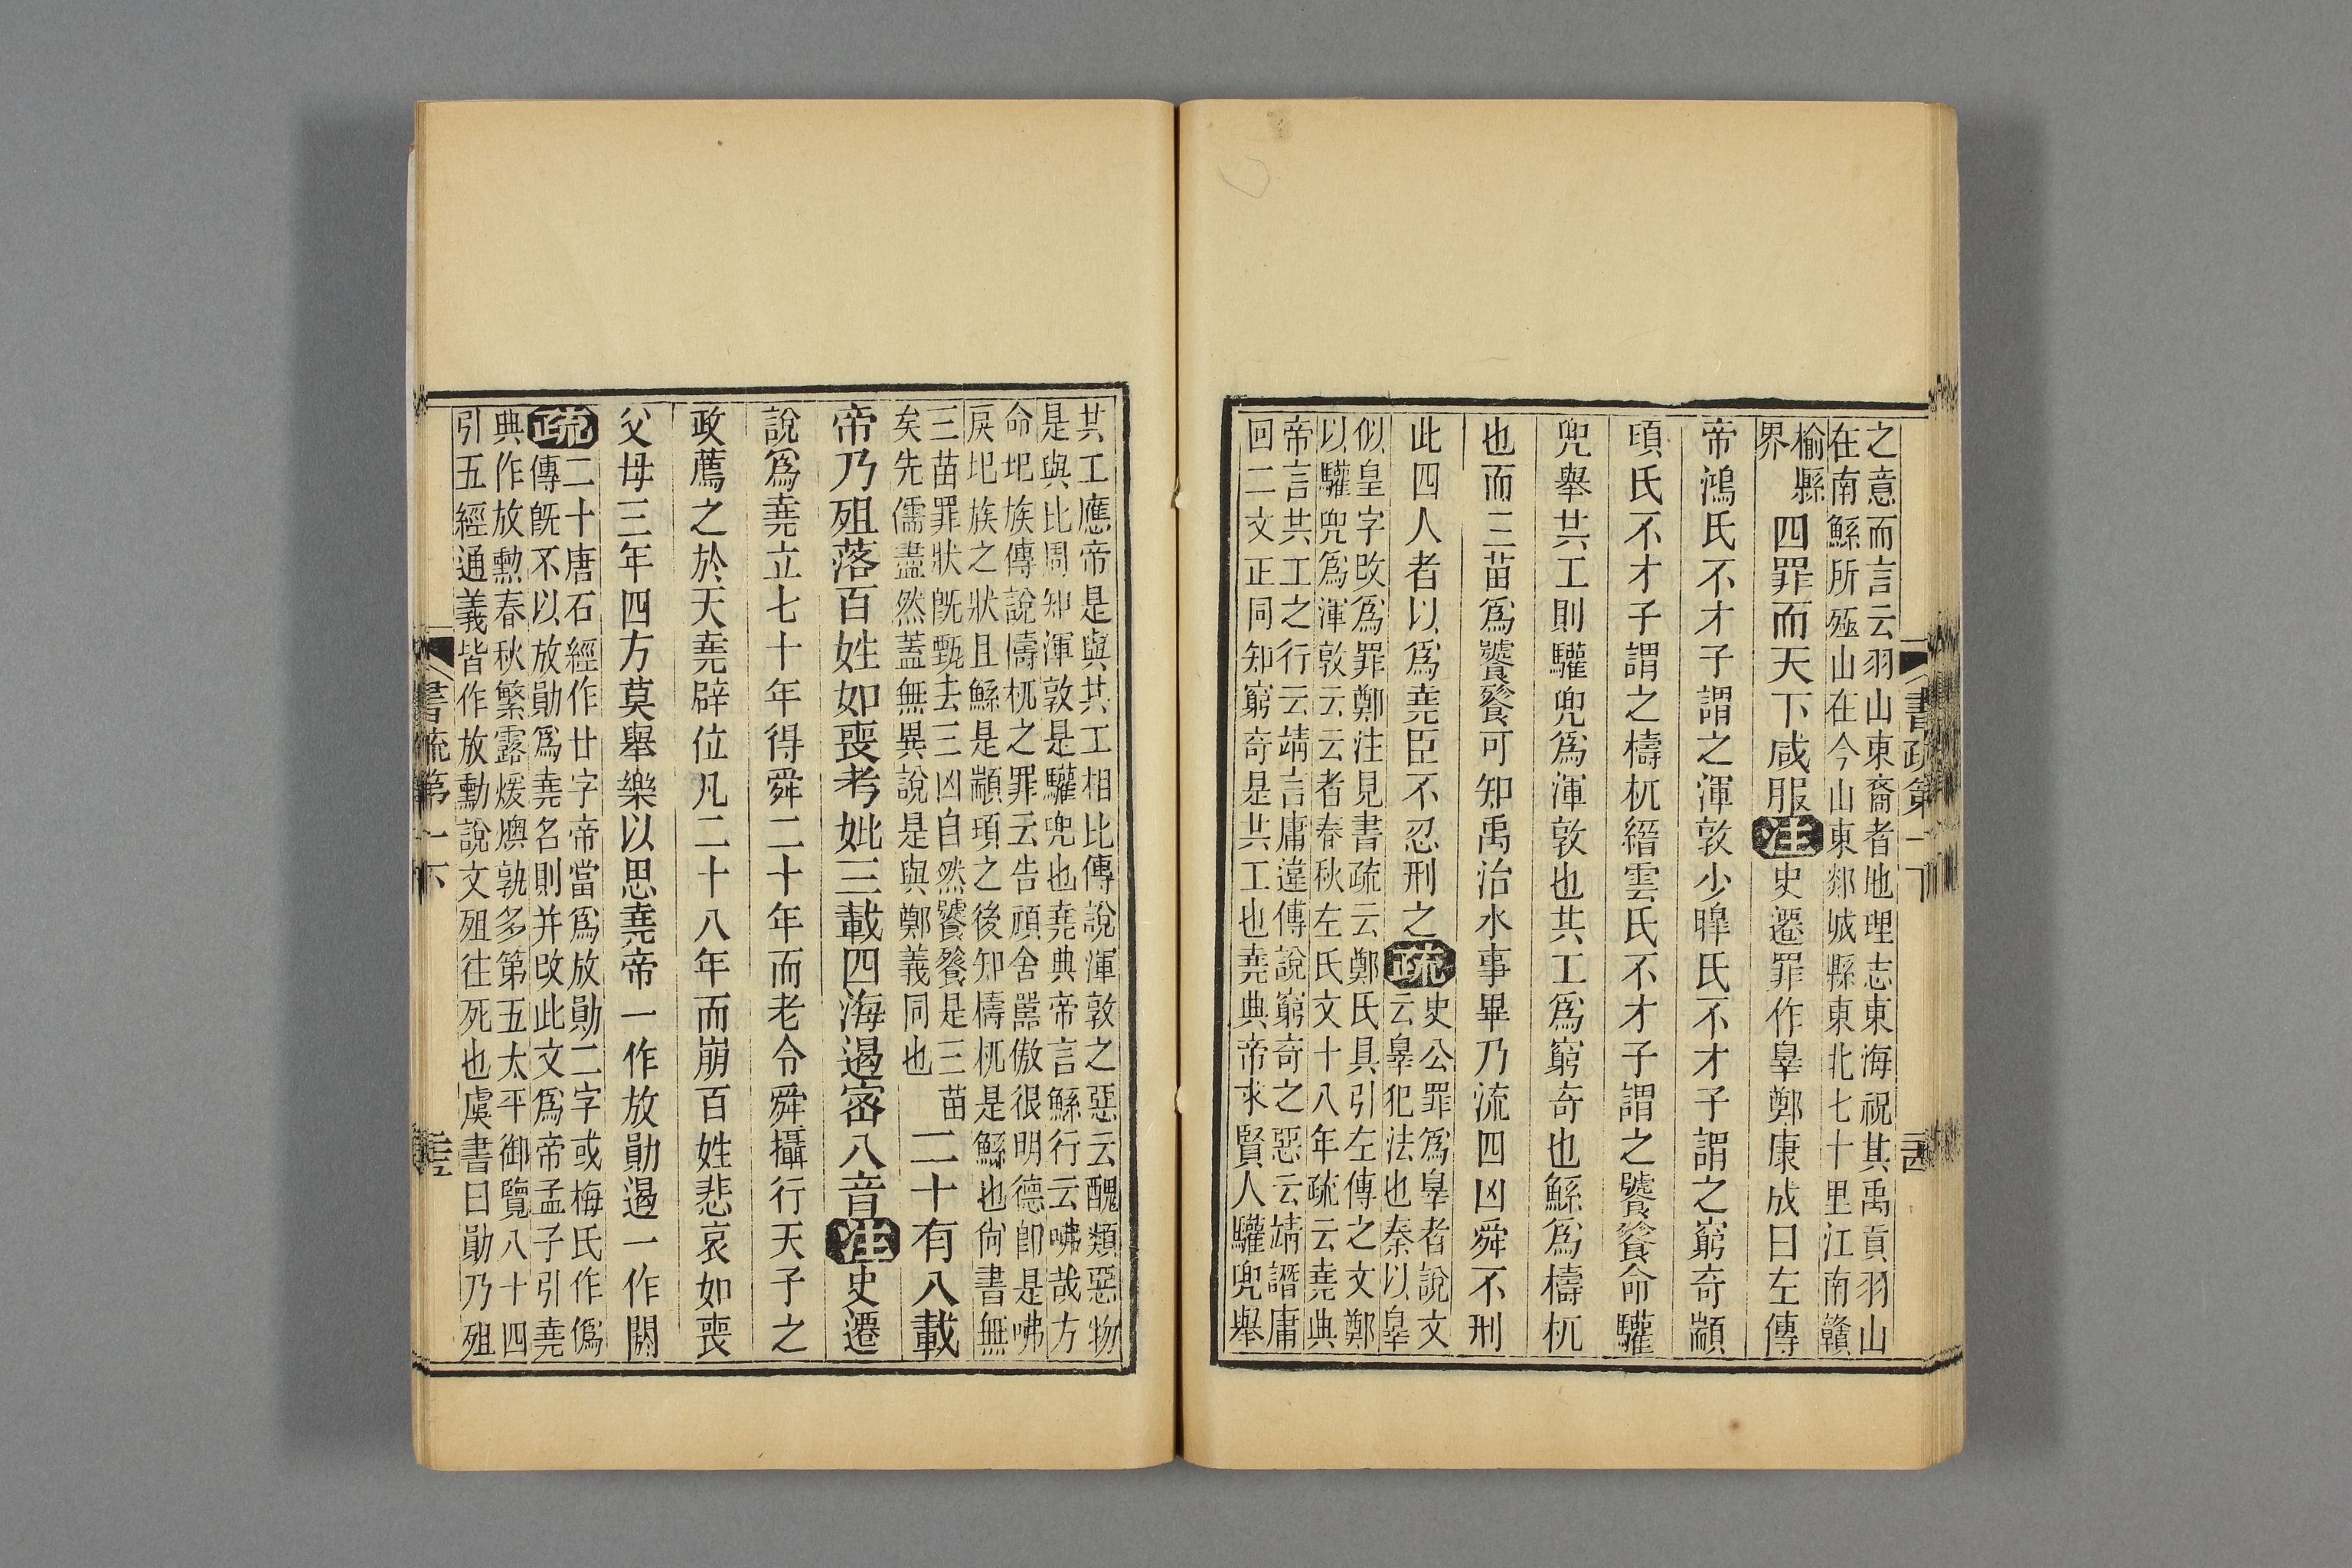 之意而言云羽山東裔者地理志東海祝其禹貢羽山
在南鯀所殛山在今山東郯城縣東北七十里江南贛
榆縣
界
四罪而天下咸服注史遷罪作辠鄭康成曰左傳
帝鴻氏不才子謂之渾敦少皥氏不才子謂之窮奇顓
頊氏不才子謂之檮杌縉雲氏不才子謂之饕餮命驩
兜舉共工則驩兜爲渾敦也共工爲窮奇也鯀爲檮杌
也而三苗爲饕餮可知禹治水事畢乃流四凶舜不刑
此四人者以爲堯臣不忍刑之疏
史公罪爲辠者說文
云辠犯法也秦以辠
似皇字改爲罪鄭注見書疏云鄭氏具引左傳之文鄭
以驩兜爲渾敦云云者春秋左氏文十八年疏云堯典
帝言共工之行云靖言庸違傳說窮奇之惡云靖譖庸
回二文正同知窮奇是共工也堯典帝求賢人驩兜舉
共工應帝是與共工相比傳說渾敦之惡云醜類惡物
是與比周知渾敦是驩兜也堯典帝言鯀行云咈哉方
命圯族傳說檮杌之罪云告頑舍嚚傲很明德卽是咈
戾圯族之狀且鯀是顓頊之後知檮杌是鯀也尙書無
三苗罪狀旣甄去三凶自然饕餮是三苗
矣先儒盡然蓋無異說是與鄭義同也
二十有八載
帝乃殂落百姓如喪考妣三載四海遏密八音注史遷
說爲堯立七十年得舜二十年而老令舜攝行天子之
政薦之於天堯辟位凡二十八年而崩百姓悲哀如喪
父母三年四方莫舉樂以思堯帝一作放勛遏一作閼
疏
二十唐石經作廿字帝當爲放勛二字或梅氏作僞
傳旣不以放勛爲堯名則并改此文爲帝孟子引堯
典作放勳春秋繁露煖燠孰多第五太平御覽八十四
引五經通義皆作放勳說文殂往死也虞書曰勛乃殂
書疏第一下